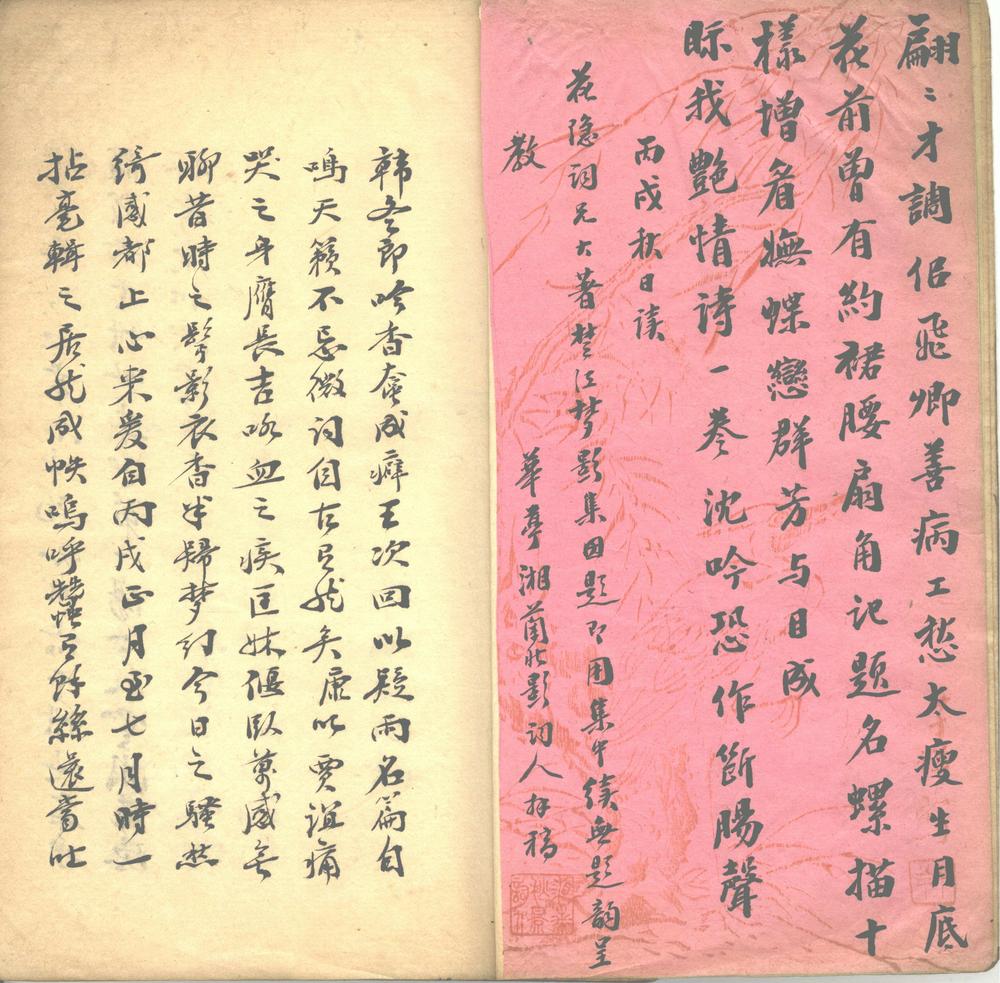 翩〻才調佀飛卿善病工愁太瘦生月底
花前曾有約裙腰扇角記題名螺描十
樣增眉嫵蝶戀群芳与目成
眎我艷情詩一卷沈吟恐作斷腸聲
丙戌秋日讀
花隱詞兄大著楚江梦影集因題即用集中續無題韵呈
教
華亭湘蘭北影詞人拜稿
韩冬郎吟香奩成癖王次回以疑雨名篇自
鳴天籟不忌微詞自古已然矣廉以賈誼痛
哭之身膺長吉嘔血之疾匡牀偃臥萬感無
聊昔時之鬓影衣香半歸梦幻今日之騷愁
綺感都上心来爰自丙戌正月至七月時一
拈毫輯之居然成帙嗚呼蠶已餘絲還嘗吐